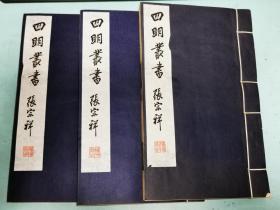 四明叢書
張宗祥
四明叢書
張宗祥
四明叢書
張宗祥